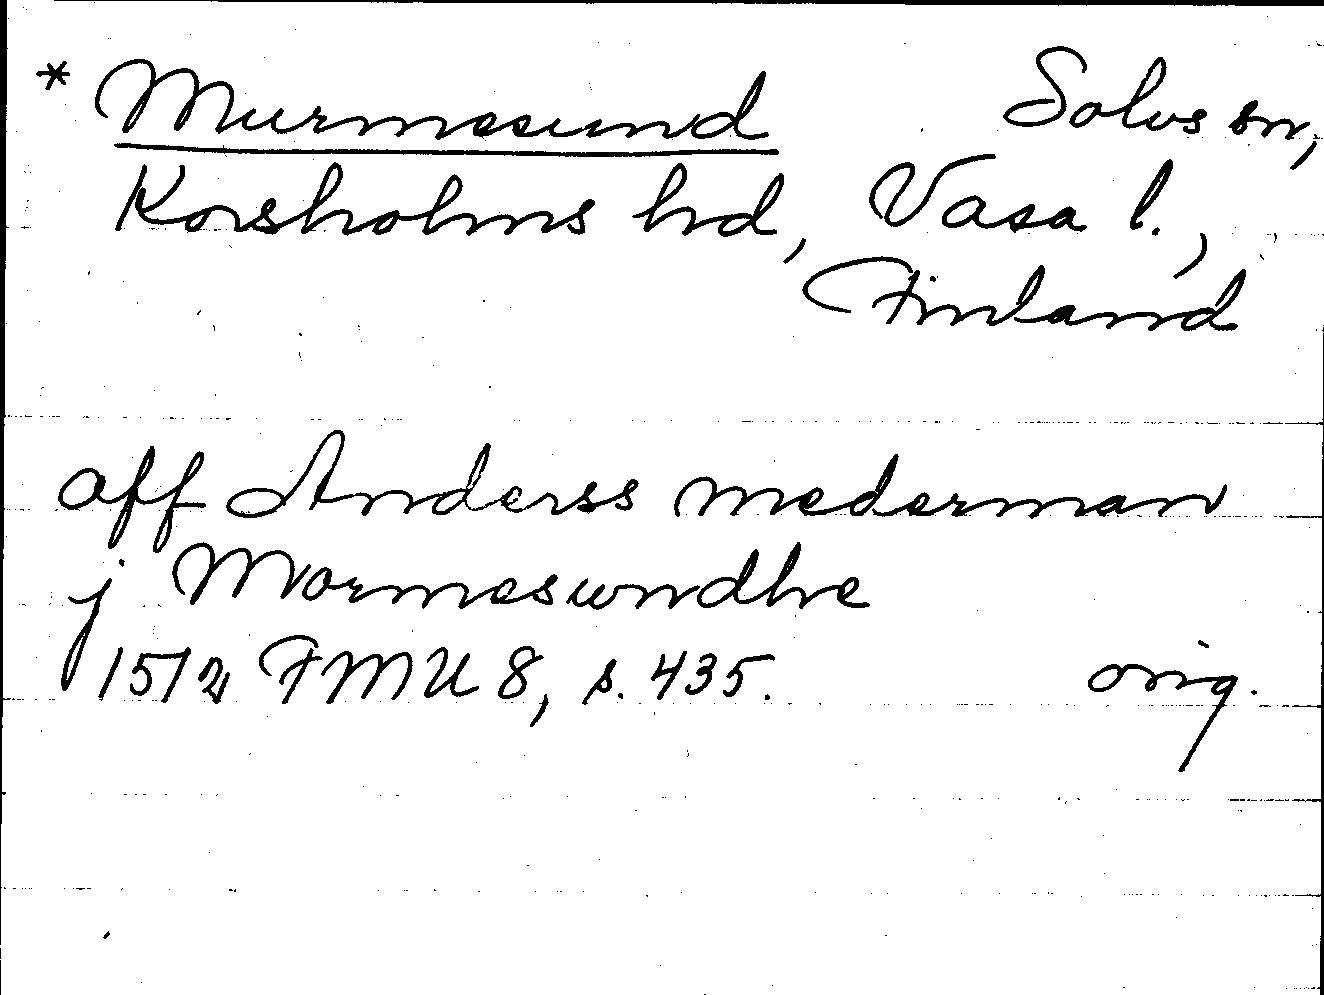 * Murmesund Solvs sn,
Korsholms hd, Vasa l.,
Finland
aff Anderss mederman
j Mormesundhe
1512 FMU 8, s. 435. orig.